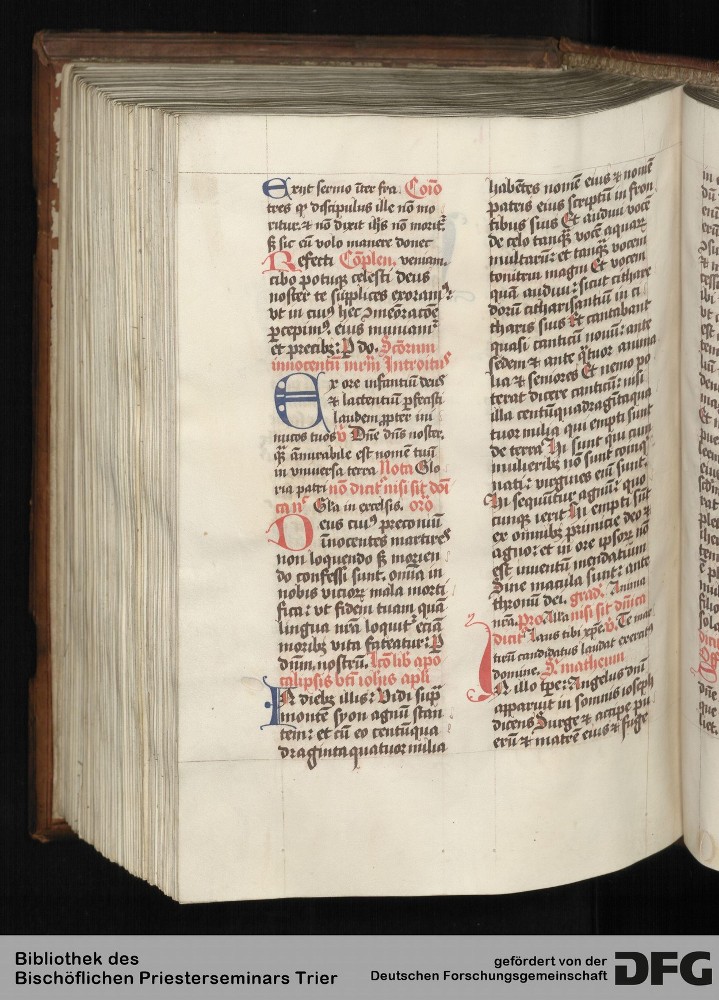 Exijt sermo īter fra. Cōio
tres qͥ discipulus ille nō mo
ritur. ⁊ nō dixit ihs nō moritꝰ
sꝫ sic eū volo manere donec
Refecti Cōplen. veniam.
cibo potuqꝫ celesti deus
noster te supplices exoramꝰ.
vt in cuiꝰ hec ɔmēoracōe
percepimꝰ. eius muniamꝰ
et precibꝫ: P do. Scōrum
innocentū mrm Introitus
Ex ore infantiū deus
⁊ lactentiū perfecisti
laudem propter ini
micos tuos v̄ Dn̄e dn̄s noster.
qͣ āmirabile est nomē tuū
in vniuersa terra Nota Glo
ria patri nō dicitͬ nisi sit dōi
caꝰ Gl̄a in excelsis. oro
Deus cuiꝰ preconiū
īnocentes martires
non loquendo sꝫ morien
do confessi sunt. om̄ia in
nobis viciorꝝ mala morti
fica: vt fidem tuam quā
lingua nr̄a loquitͬ eciā
moribꝫ vita fateatur: P
dnm̄. nostrū. Lcō lib apo
calipsis btī iohis apli
IN diebꝫ illis: Vidi supͣ
montē syon agnū stan
tem: et cū eo centūqua
dragintaquatuor milia
habētes nomē eius ⁊ nomē
patris eius scriptū in fron
tibus suis Et audiui vocē
de celo tanqͣ vocē aquarꝝ
multarū: et tanqͣ vocem
tonitrui magni Et vocem
quā audiui: sicut cithare
dorū citharisantiū in ci
tharis suis Et cantabant
quasi canticū nouū: ante
sedem ⁊ ante qͣtuor anima
lia ⁊ seniores Et nemo po
terat dicere canticū: nisi
illa centūquadragītaqua
tuor milia qui empti sunt
de terra Hi sunt qui cum
mulieribꝫ nō sunt coinqͥ
nati: virgines eni sunt.
Hi sequūtur agnū: quo
cunqꝫ ierit Hi empti sūt
ex om̄ibꝫ primicie deo ⁊
agno: et in ore ipsorꝝ nō
est inuentū mendatium
Sine macula sunt: ante
thronū dei. grad. Anima
nr̄a. Pro Alla nisi sit dn̄ica
dicitͬ Laus tibi xp̄e. v̄. Te mar
tirū candidatus laudat exercitꝰ
domine. S. matheum
IN illo tp̄e: Angelus dn̄i
apparuit in somnis ioseph
dicens Surge ⁊ accipe pu
erū ⁊ matrē eius ⁊ fuge
Bibliothek des
Bischöflichen Priesterseminars Trier
gefördert von der
Deutschen Forschungsgemeinschaft
DFG